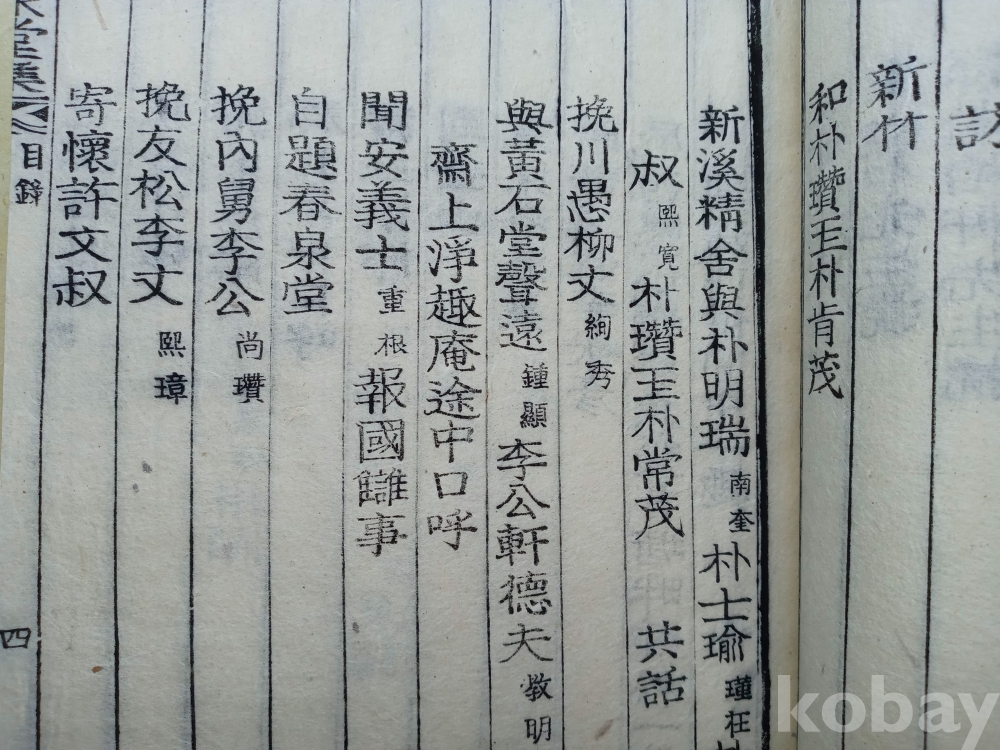 訪
新竹
和朴瓚玉朴肯茂
新溪精舍與朴明瑞南奎朴士瑜瑾枉
叔熙寬朴瓚玉朴常茂 共話
挽川愚柳丈絢秀
與黃石堂聲遠鍾顯李公軒德夫敎明
齋上淨趣庵途中口呼
聞安義士重根報國讎事
自題春泉堂
挽內舅李公尚瓚
挽友松李丈熙璋
寄懷許文叔
堂集
目錄
四
kobay